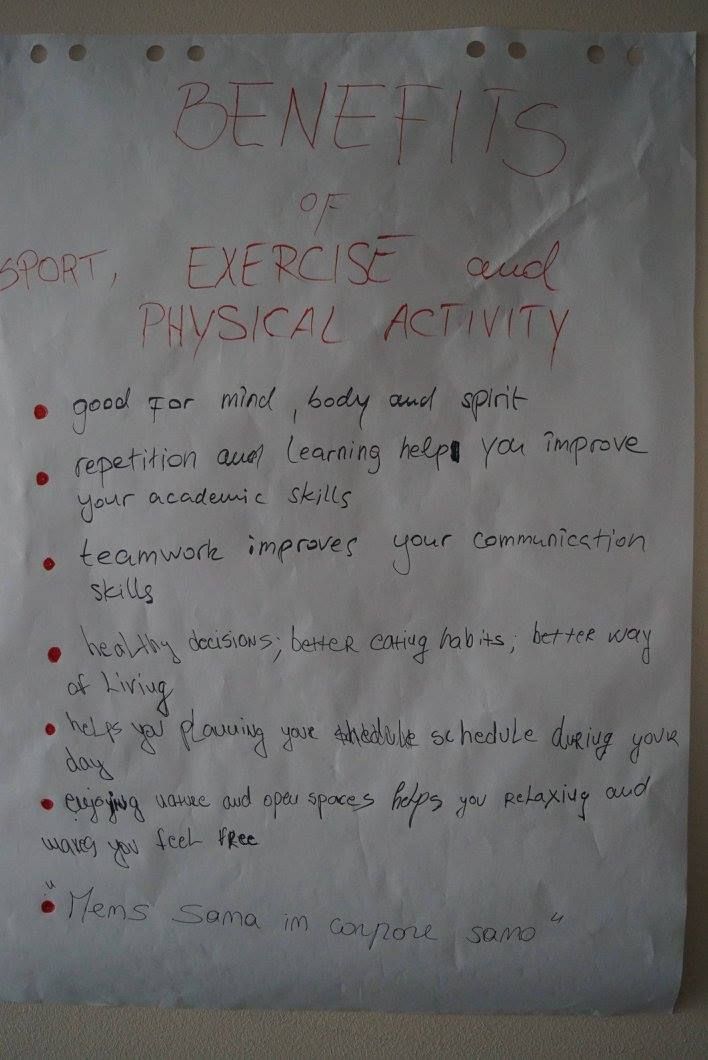 BENEFITS
OF
SPORT, EXERCISE and
PHYSICAL ACTIVITY
good for mind, body and spirit
repetition and learning help you improve
your academic skills
teamwork improves your communication
skills
healthy decisions; better eating habits; better way
of living
helps you planning your schedule schedule during your
day
enjoying nature and open spaces helps you relaxing and
makes you feel free
"Mens sana in corpore sano"